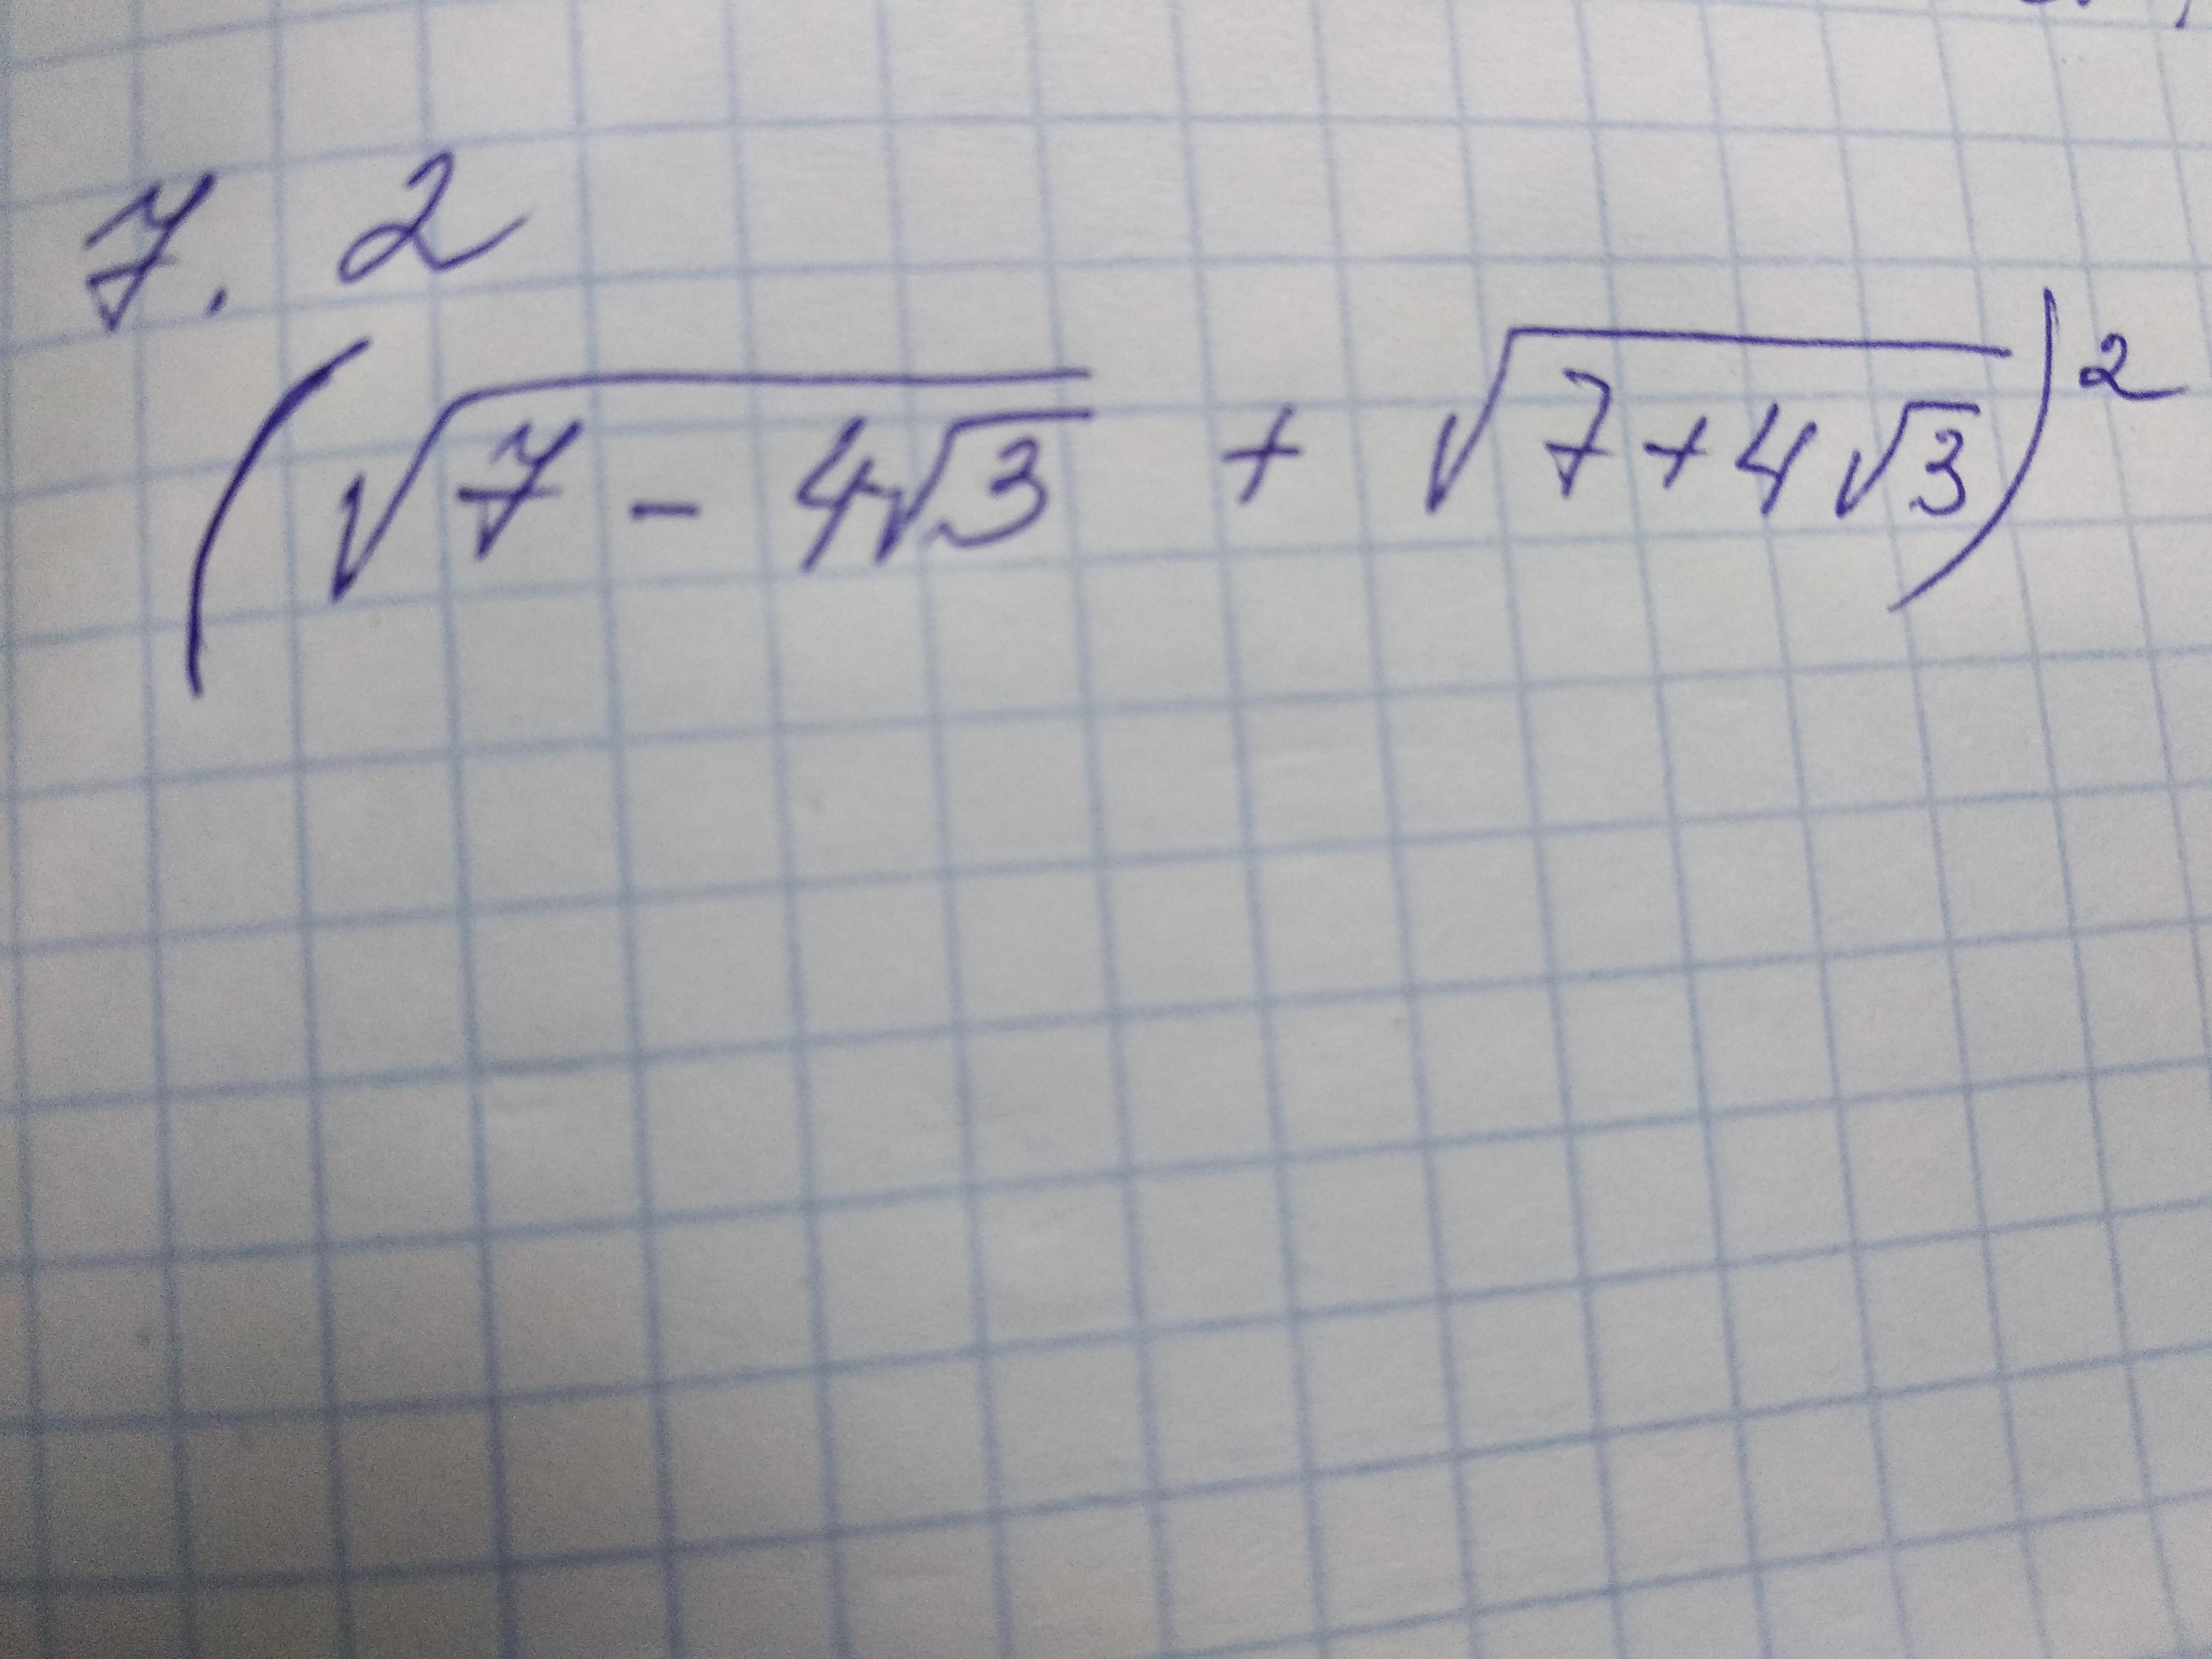 7. 2
(√(7 - 4√3) + √(7+4√3))²